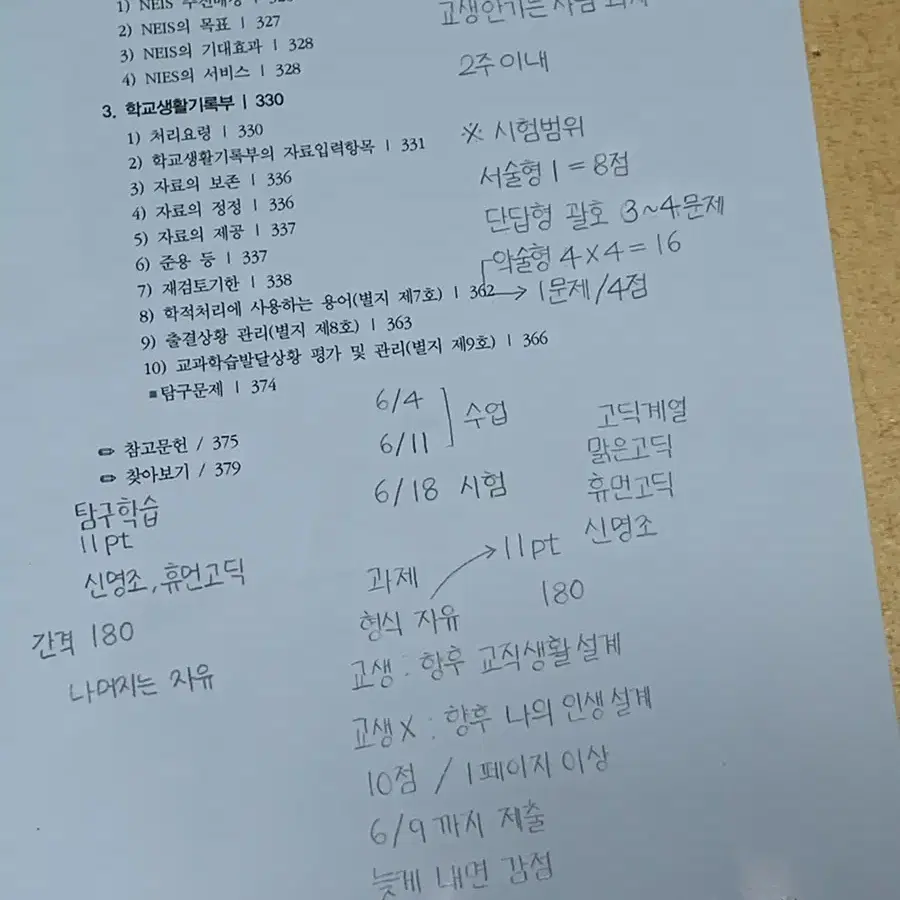 1) NEIS 추진배경 |
2) NEIS의 목표 | 327
3) NEIS의 기대효과 | 328
4) NIES의 서비스 | 328
3. 학교생활기록부 | 330
1) 처리요령 | 330
2) 학교생활기록부의 자료입력항목 | 331
3) 자료의 보존 | 336
4) 자료의 정정 | 336
5) 자료의 제공 | 337
6) 준용 등 | 337
7) 재검토기한 | 338
8) 학적처리에 사용하는 용어(별지 제7호) | 362
9) 출결상황 관리(별지 제8호) | 363
10) 교과학습발달상황 평가 및 관리(별지 제9호) | 366
■ 탐구문제 | 374
참고문헌 / 375
찾아보기 / 379
교생안가는사람
2주 이내
※ 시험범위
서술형 1 = 8점
단답형 괄호 3~4문제
약술형 4×4=16
→ 1문제/4점
6/4
6/11
수업
6/18 시험
고딕계열
맑은고딕
휴먼고딕
신명조
탐구학습
11pt
신명조, 휴먼고딕
간격 180
나머지는 자유
과제
형식 자유 → 11pt
180
교생 : 향후 교직생활 설계
교생X : 향후 나의 인생설계
10점 / 1페이지 이상
6/9까지 제출
늦게 내면 감점